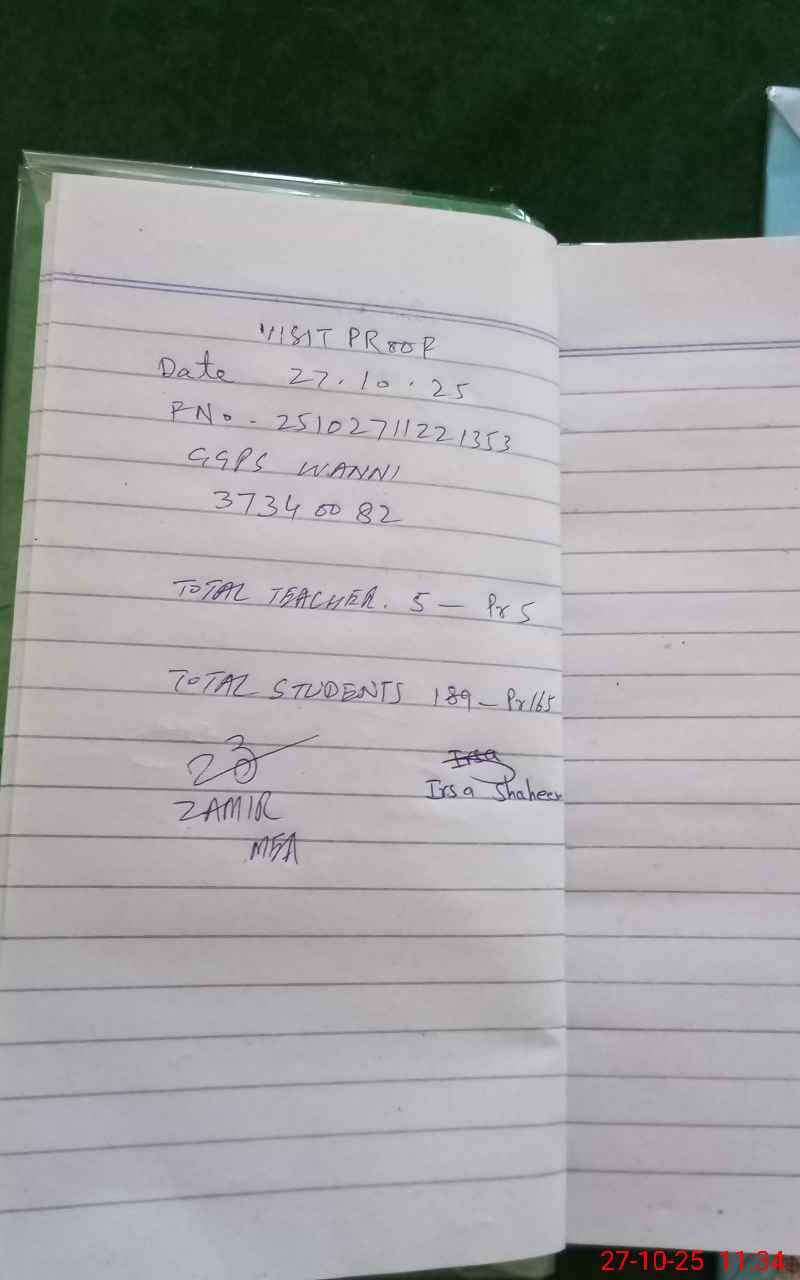 VISIT PROOF
Date 27.10.25
RNo - 25102711221353
GGPS WANNI
37340082
TOTAL TEACHER. 5 - Pr 5
TOTAL STUDENTS 189 - Pr 165
Irsa
ZAMIR Irsa Shaheer
MEA
27-10-25 11:34